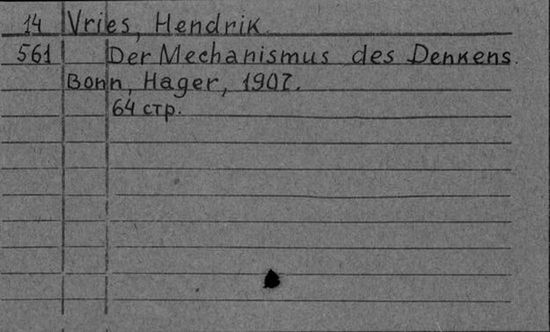 14 Vries, Hendrik.
561 Der Mechanismus des Denkens.
Bonn, Hager, 1907.
64 стр.